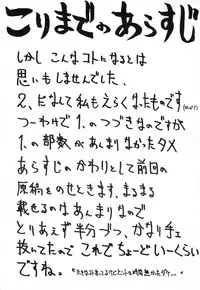 これまでのあらすじ
しかし こんなコトになるとは
思いもしませんでした、
2、だなんて私もえらくなったものです
つーわけで1の つづきなのですが
1、の部数が あんまりなかったタメ
あらすじのかわりとして前回の
原稿をのせときます、まるまる
載せるのはあんまりなので
とりあえず半分づつ、かなり手
抜いてたので これでちょーどいーくらい
ですね。